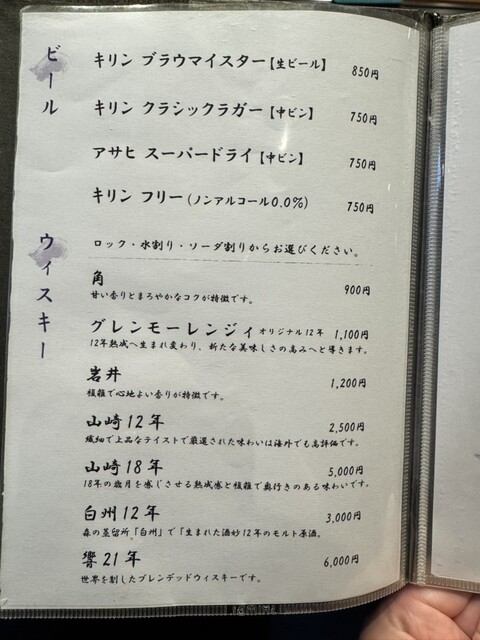 ビール
キリン ブラウマイスター【生ビール】 850円
キリン クラシックラガー【中ビン】 750円
アサヒ スーパードライ【中ビン】 750円
キリン フリー(ノンアルコール0.0%) 750円
ウィスキー
ロック・水割り・ソーダ割りからお選びください。
角 900円
甘い香りとまろやかなコクが特徴です。
グレンモーレンジィ オリジナル12年 1,100円
12年熟成へ生まれ変わり、新たな美味しさの高みへと導きます。
岩井 1,200円
複雑で心地よい香りが特徴です。
山崎12年 2,500円
繊細で上品なテイストで厳選された味わいは海外でも高評価です。
山崎18年 5,000円
18年の歳月を感じさせる熟成感と複雑で奥行きのある味わいです。
白州12年 3,000円
森の蒸留所「白州」で「生まれた酒妙12年のモルト原酒。
響21年 6,000円
世界を制したブレンデッドウィスキーです。